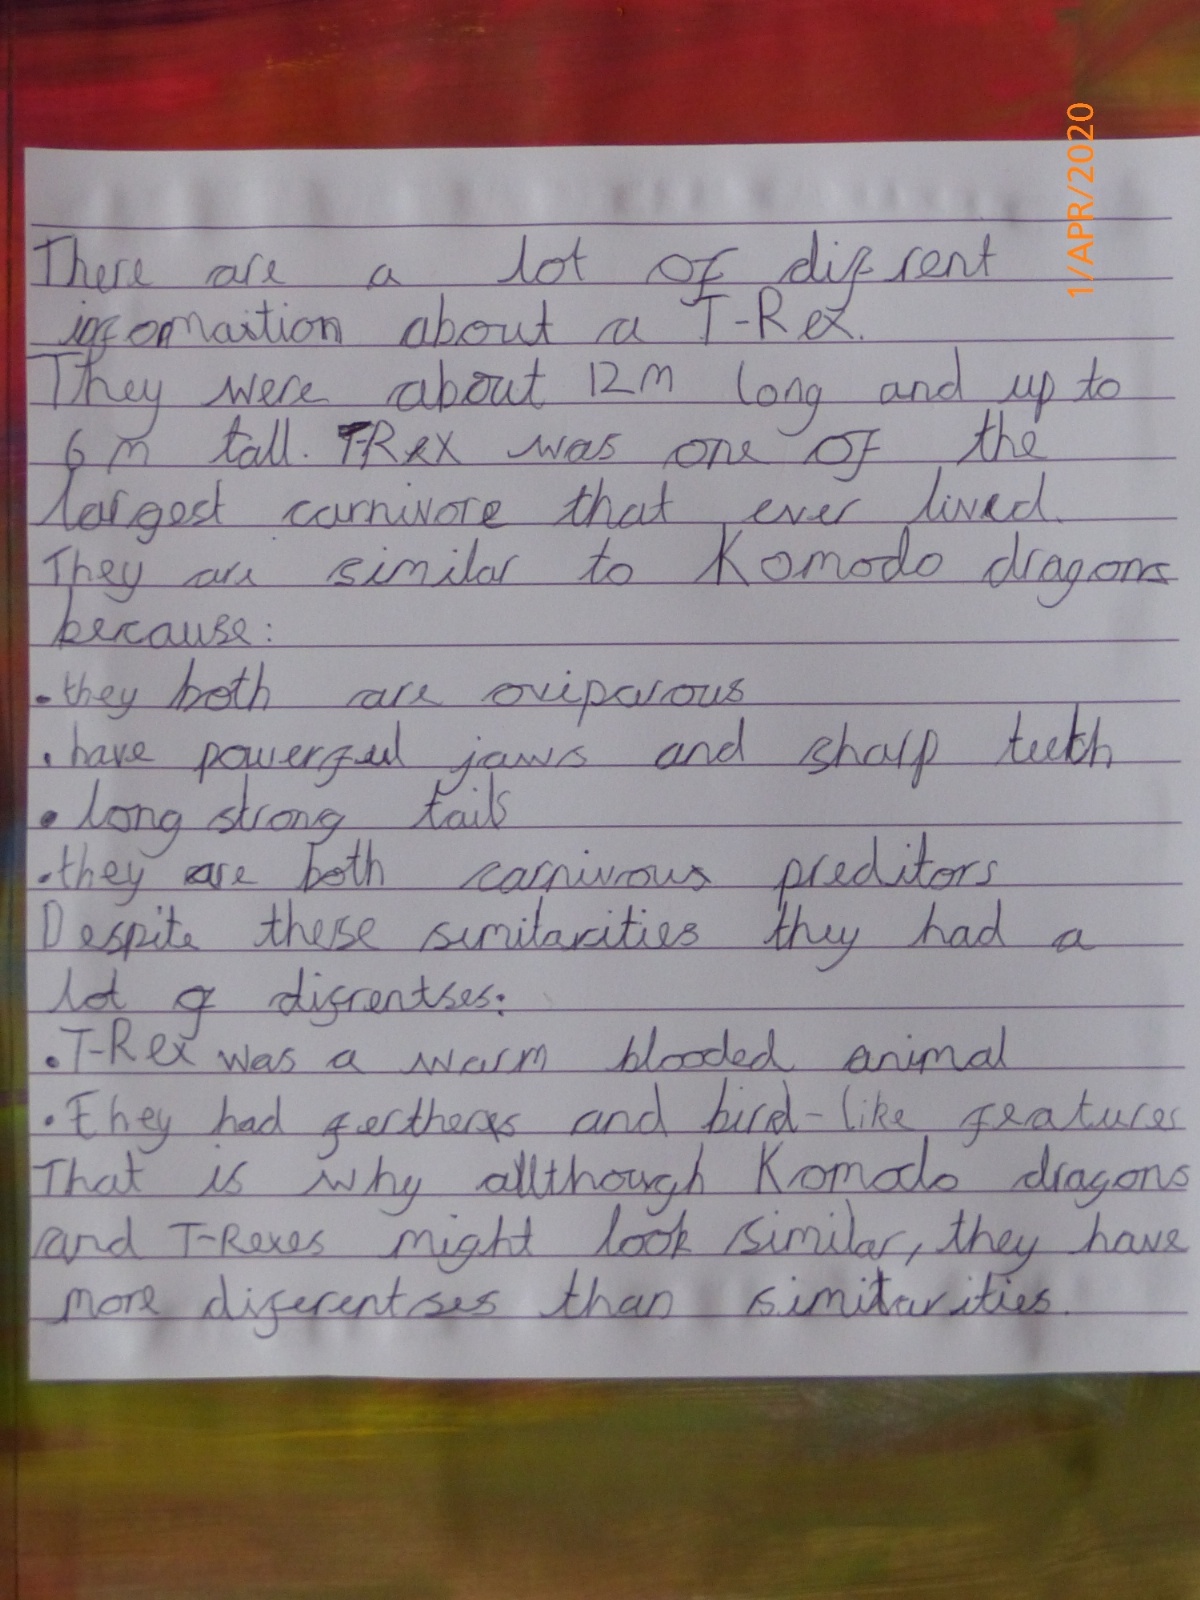 1/APR/2020
There are a lot of difrent
infomaition about a T-Rex.
They were about 12m long and up to
6m tall. T-Rex was one of the
largest carnivore that ever lived.
They are similar to Komodo dragons
because:
• they both are oviparous
• have powerful jaws and sharp teeth
• long strong tails
• they are both carnivrous preditors
Despite these similarities they had a
lot of difrentses:
• T-Rex was a warm blooded animal
• They had ferthers and bird-like features
That is why allthough Komodo dragons
and T-Rexes might look similar, they have
more diferentses than similarities.